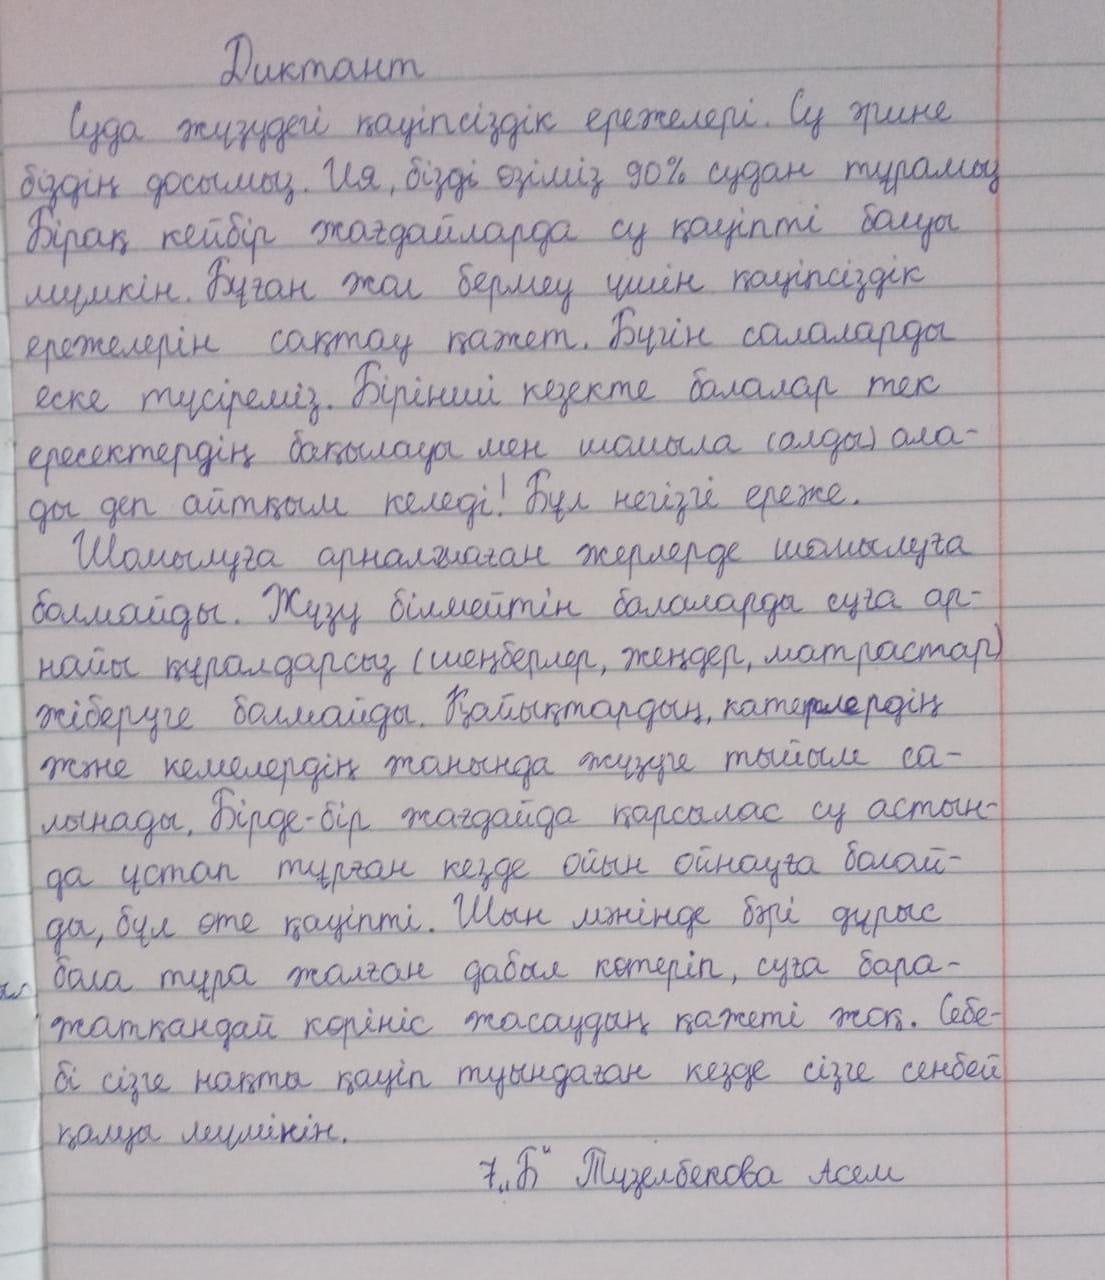 Диктант
Суда жүзудегі қауіпсіздік ережелері. Су және
біздің досымыз. Ия, бізді өзіміз 90% судан тұрамыз
Бірақ кейбір жағдайларда су қауіпті болуы
мүмкін. Бұған жол бермеу үшін қауіпсіздік
ережелерін сақтау қажет. Бүгін салаларды
еске түсіреміз. Бірінші кезекте балалар тек
ересектердің бақылауы мен шомыла (алды) ала-
ды деп айтқым келеді! Бұл негізгі ереже.
Шомылуға арналмаған жерлерде шомылуға
болмайды. Жүзу білмейтін балаларды суға ар-
найы құралдарсыз (шеңберлер, жеңдер, матрастар)
жіберуге болмайды. Қайықтардың, катерлердің
және кемелердің жанында жүзуге тыйым са-
лынады, Бірде-бір жағдайда қарсылас су астын-
да ұстап тұрған кезде ойын ойнауға болай-
ды, бұл өте қауіпті. Шын мәнінде бәрі дұрыс
бола тұра жалған дабыл көтеріп, суға бара-
жатқандай көрініс жасаудың қажеті жоқ. Себе-
бі сізге нақты қауіп туындаған кезде сізге сенбей
қалуы мүмкін.
7 „Б" Түзелбекова Асем